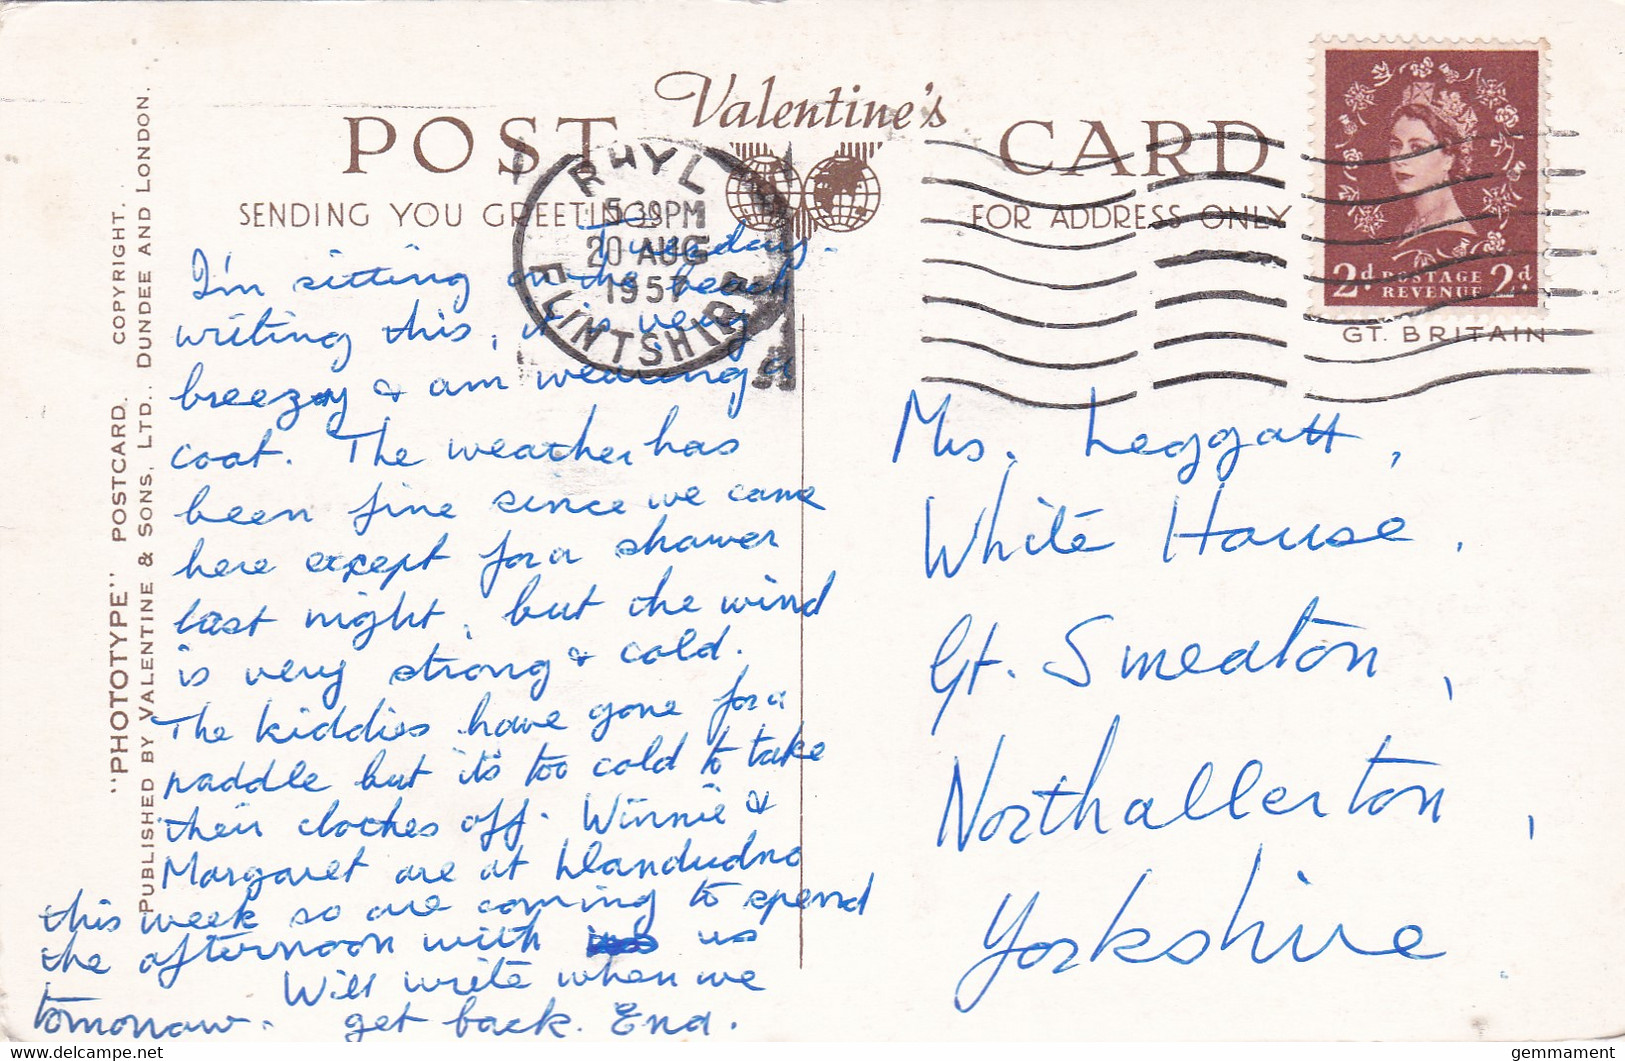 Valentine's
POST CARD
SENDING YOU GREETINGS
FOR ADDRESS ONLY
RHYL
5 30PM
20 AUG
1957
FLINTSHIRE
2d POSTAGE REVENUE 2d
GT. BRITAIN
"PHOTOTYPE" POSTCARD. COPYRIGHT.
PUBLISHED BY VALENTINE & SONS, LTD., DUNDEE AND LONDON.
Tuesday.
I'm sitting on the beach
writing this, it is very
breezy & am wearing a
coat. The weather has
been fine since we came
here except for a shower
last night, but the wind
is very strong & cold.
The kiddies have gone for a
paddle but it's too cold to take
their clothes off. Winnie &
Margaret are at Llandudno
this week so are coming to spend
the afternoon with us
tomorrow. Will write when we
get back. Ena.
Mrs. Leggatt,
White House,
Gt. Smeaton,
Northallerton,
Yorkshire
gemmament